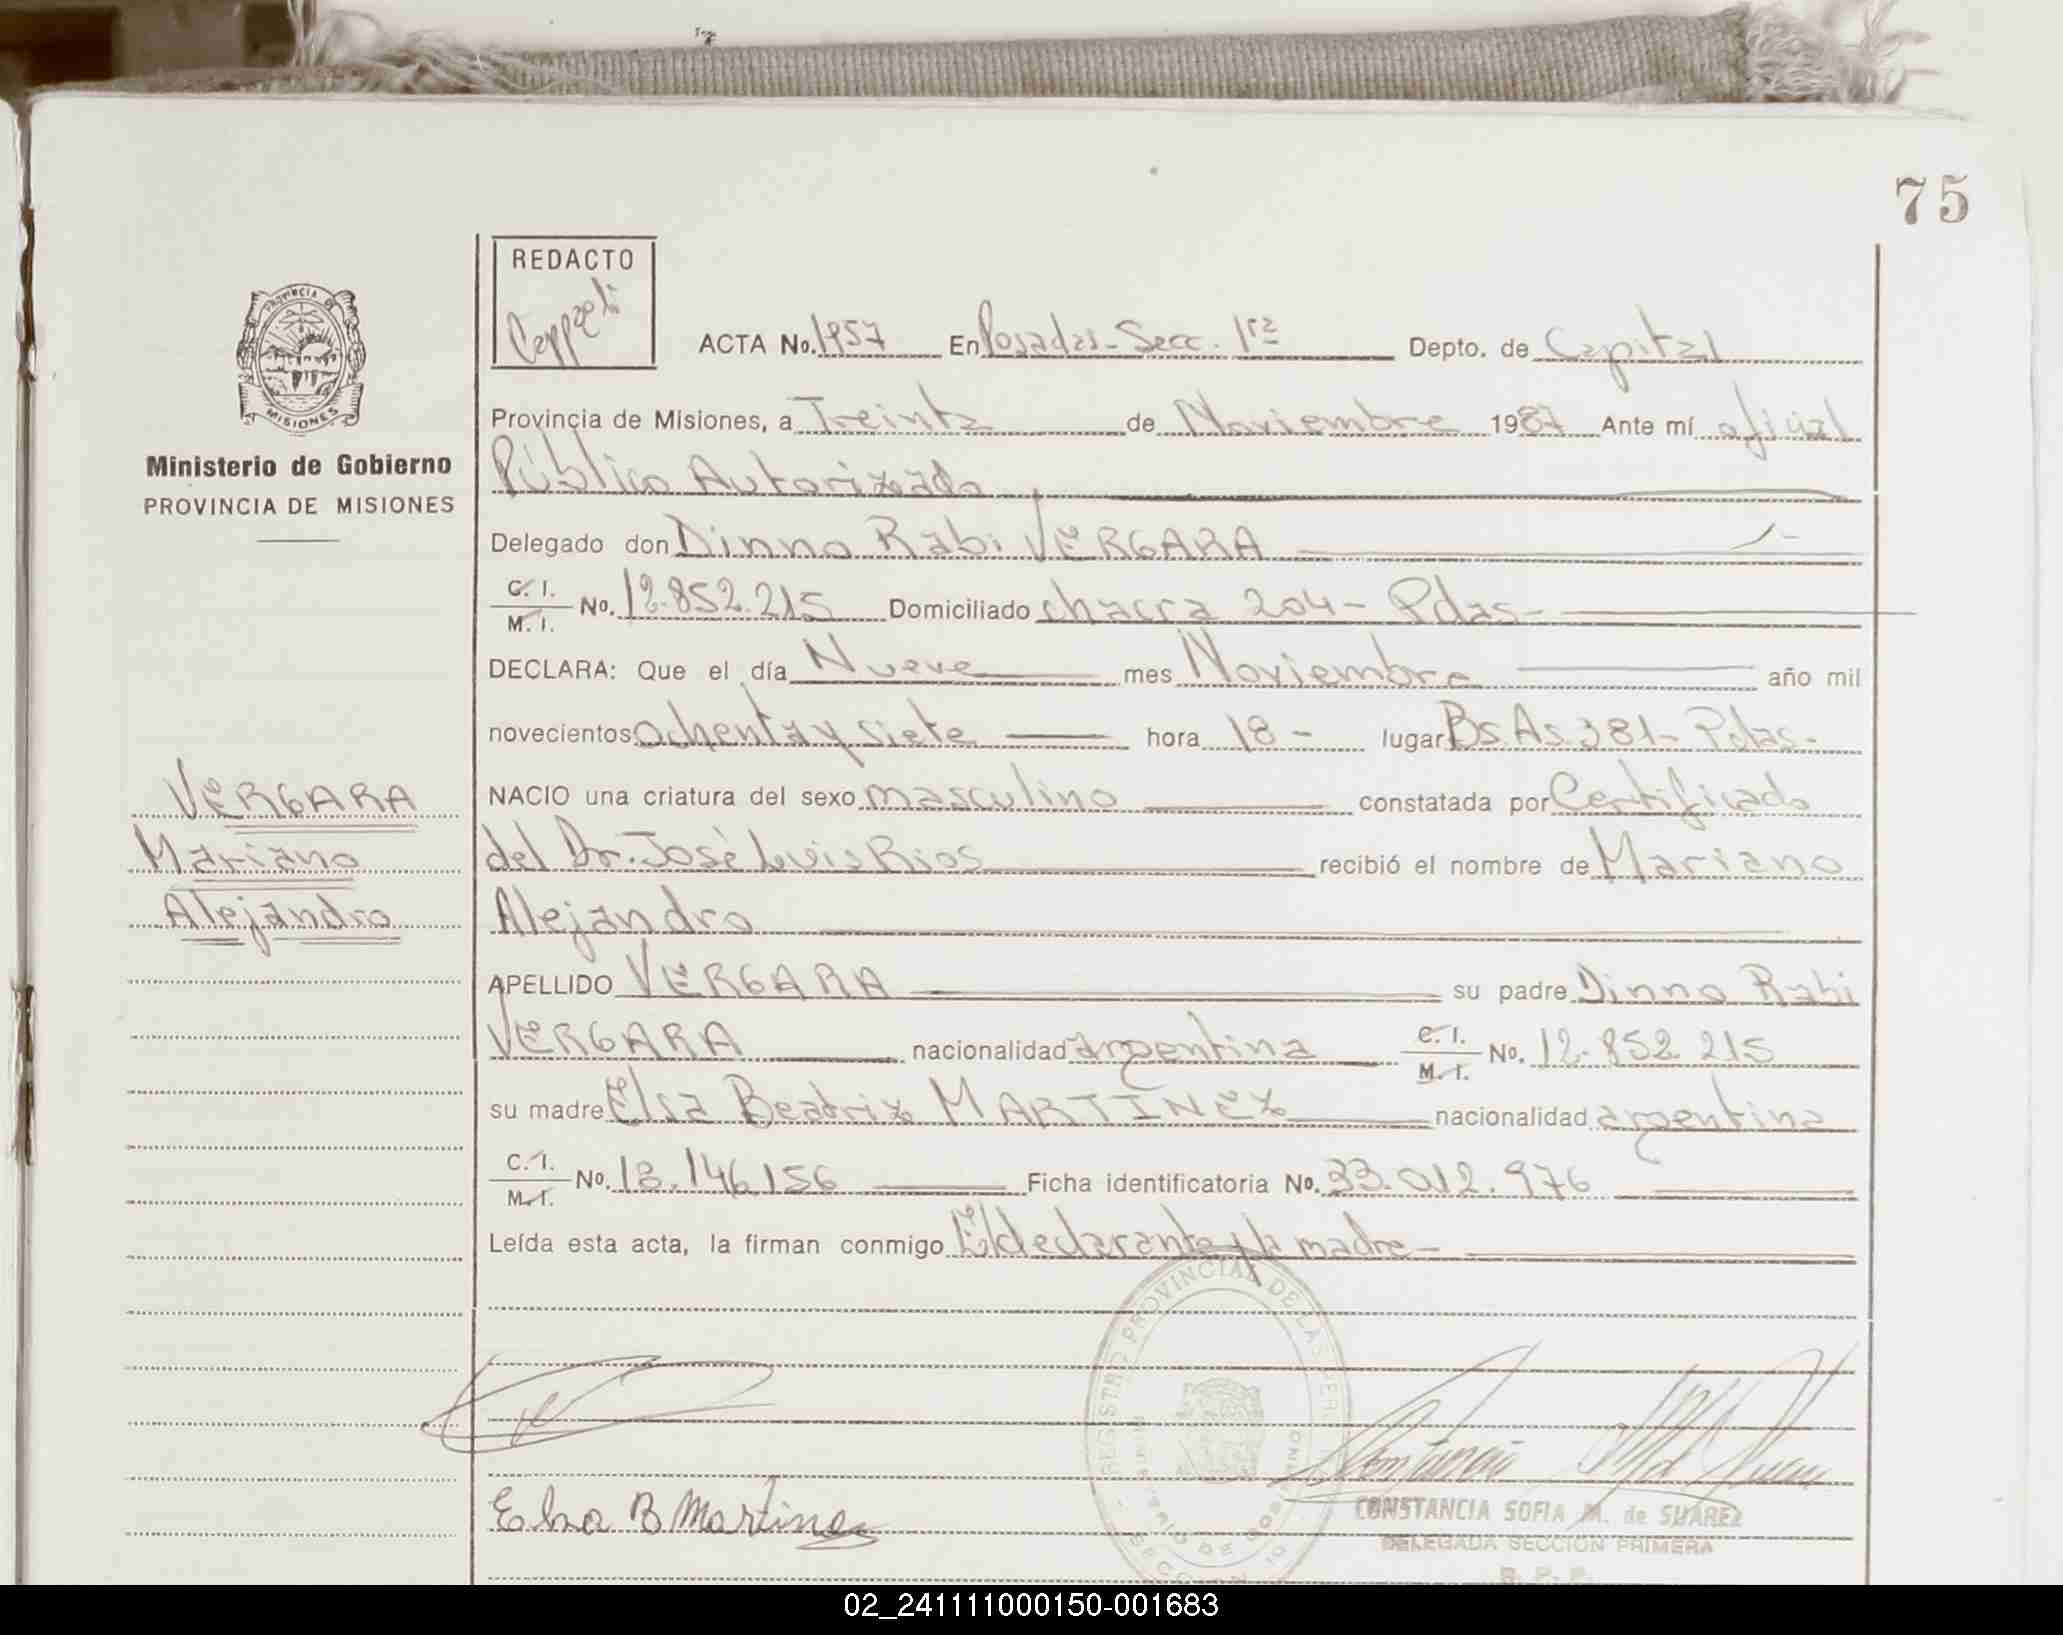 75
REDACTO
PROVINCIA DE
MISIONES
Ministerio de Gobierno
PROVINCIA DE MISIONES
ACTA No. 1957 En Posadas - Secc. 1ra Depto. de Capital
Provincia de Misiones, a Treinta de Noviembre 1987 Ante mí oficial
Público Autorizado
Delegado don Dinno Rabi VERGARA
C. I. / M. I. No. 12.852.215 Domiciliado chacra 204 - Pdas -
DECLARA: Que el día Nueve mes Noviembre año mil
novecientos ochenta y siete hora 18 - lugar Bs. As. 381 - Pdas -
NACIO una criatura del sexo masculino constatada por Certificado
del Dr. José Luis Rios recibió el nombre de Mariano
Alejandro
VERGARA
Mariano
Alejandro
APELLIDO VERGARA su padre Dinno Rabi
VERGARA nacionalidad argentina C. I. / M. I. No. 12.852.215
su madre Elsa Beatriz MARTINEZ nacionalidad argentina
C. I. / M. I. No. 13.146.156 Ficha identificatoria No. 33.012.976
Leída esta acta, la firman conmigo El declarante y la madre -
REGISTRO PROVINCIAL DE LAS PER
Elsa B Martinez
CONSTANCIA SOFIA M. de SUAREZ
DELEGADA SECCION PRIMERA
R. P. P.
02_241111000150-001683